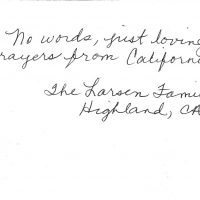 No words, just loving
rayers from Californi
The Larsen Fami
Highland, CA